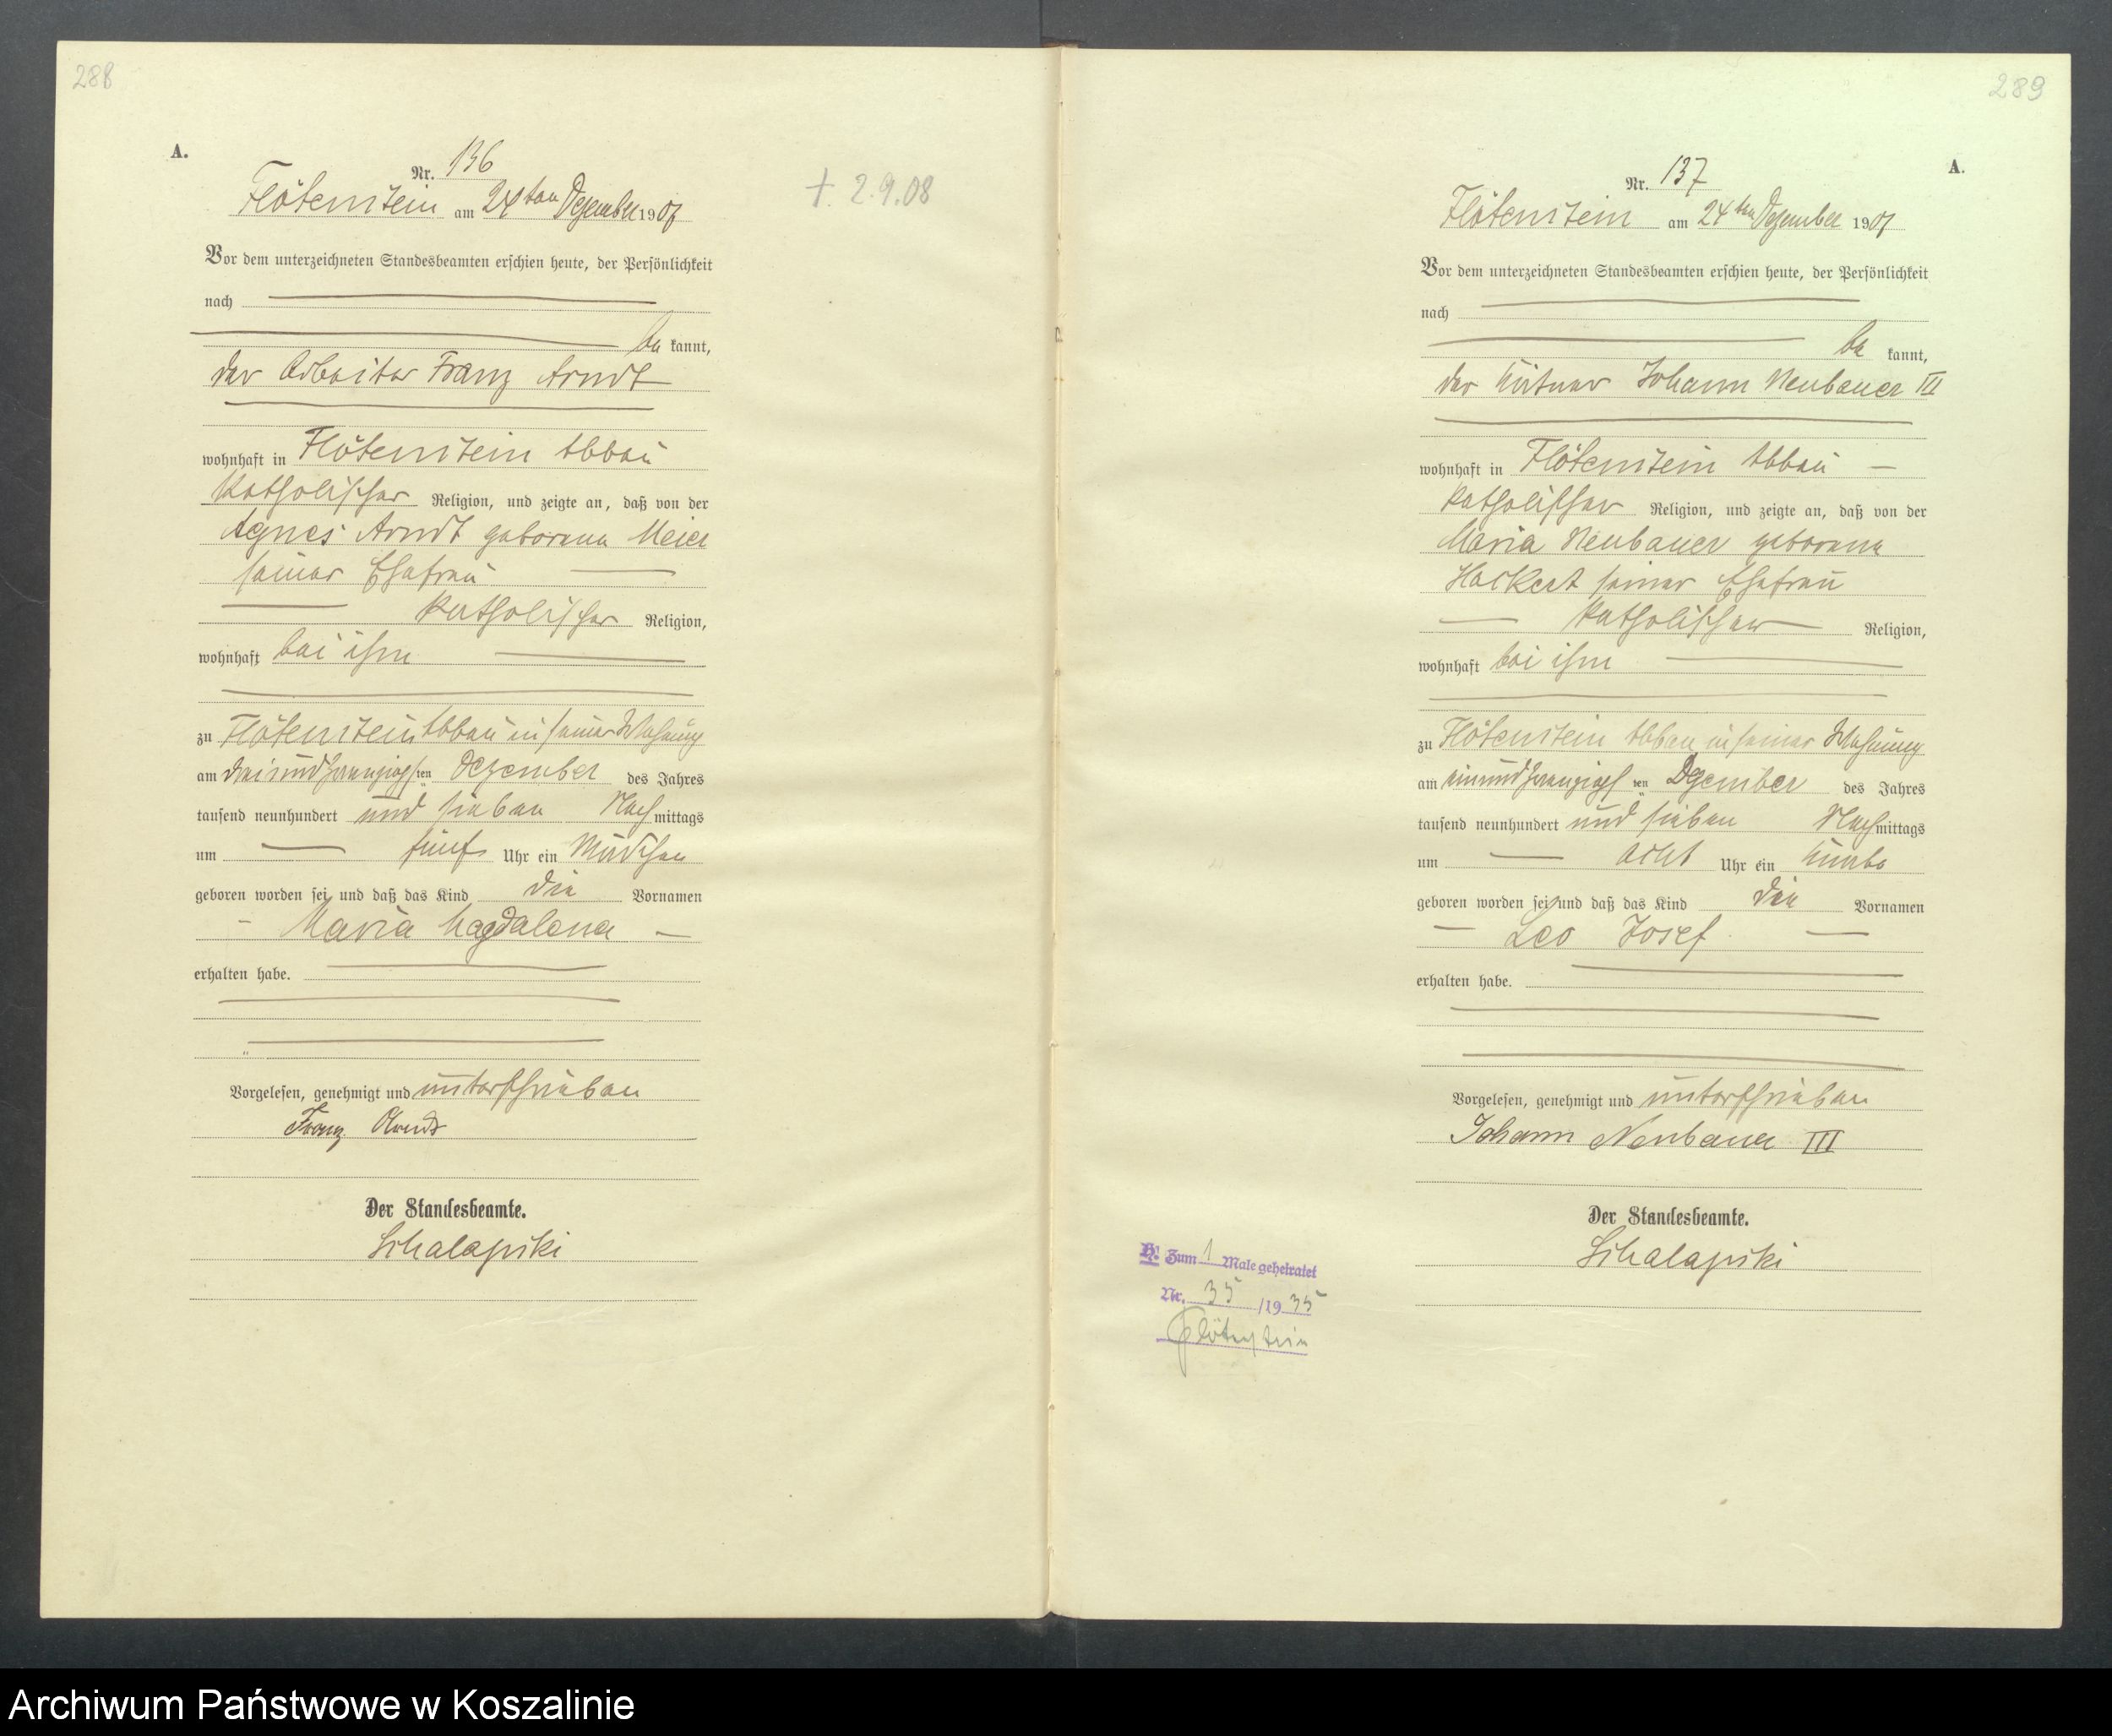 288
A.
Nr. 136
Flötenstein am 24ten Dezember 1907
† 2.9.08
Vor dem unterzeichneten Standesbeamten erschien heute, der Persönlichkeit
nach
be kannt,
der Arbeiter Franz Arndt
wohnhaft in Flötenstein Abbau
katholischer Religion, und zeigte an, daß von der
Agnes Arndt geborene Meier
seiner Ehefrau
katholischer Religion,
wohnhaft bei ihm
zu Flötenstein Abbau in seiner Wohnung
am dreiundzwanzigsten Dezember des Jahres
tausend neunhundert und sieben Nachmittags
um fünf Uhr ein Mädchen
geboren worden sei und daß das Kind die Vornamen
Maria Magdalena
erhalten habe.
Vorgelesen, genehmigt und unterschrieben
Franz Arndt
Der Standesbeamte.
Schalapski
289
A.
Nr. 137
Flötenstein am 24ten Dezember 1907
Vor dem unterzeichneten Standesbeamten erschien heute, der Persönlichkeit
nach
be kannt,
der Kätner Johann Neubauer III
wohnhaft in Flötenstein Abbau
katholischer Religion, und zeigte an, daß von der
Maria Neubauer geborene
Hackert seiner Ehefrau
katholischer Religion,
wohnhaft bei ihm
zu Flötenstein Abbau in seiner Wohnung
am einundzwanzigsten Dezember des Jahres
tausend neunhundert und sieben Nachmittags
um acht Uhr ein Knabe
geboren worden sei und daß das Kind die Vornamen
Leo Josef
erhalten habe.
Vorgelesen, genehmigt und unterschrieben
Johann Neubauer III
Der Standesbeamte.
Schalapski
H! Zum 1 Male geheiratet
Nr. 35 /1935
Flötenstein
Archiwum Państwowe w Koszalinie